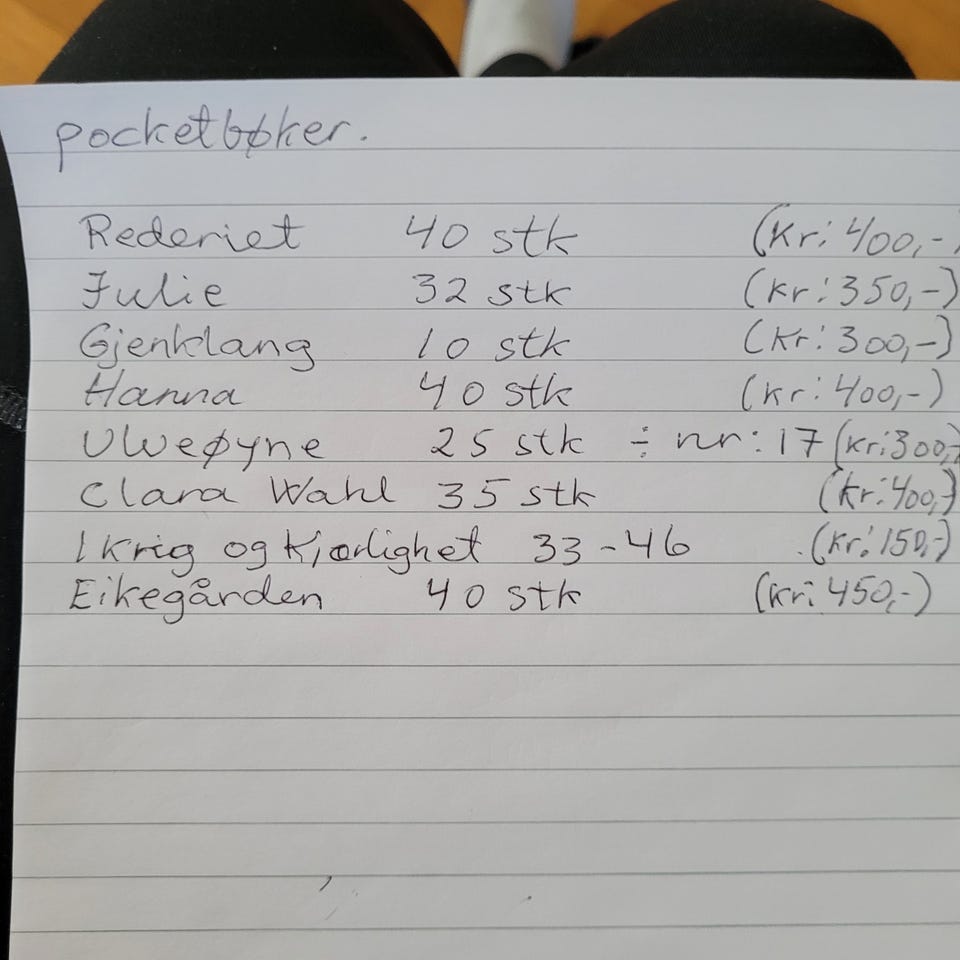 pocketbøker.
Rederiet 40 stk (Kr: 400,-)
Julie 32 stk (kr: 350,-)
Gjenklang 10 stk (Kr: 300,-)
Hanna 40 stk (kr: 400,-)
Ulveøyne 25 stk ÷ nr: 17 (kr: 300,-)
Clara Wahl 35 stk (kr: 400,-)
I krig og kjærlighet 33-46 (kr: 150,-)
Eikegården 40 stk (kr: 450,-)